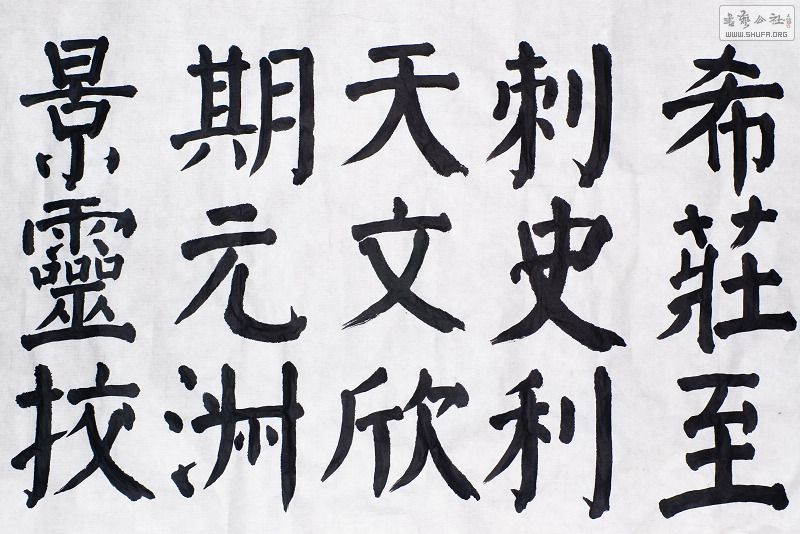 希莊至
刺史利
天文欣
期元洲
景靈
書藝公社
WWW.SHUFA.ORG